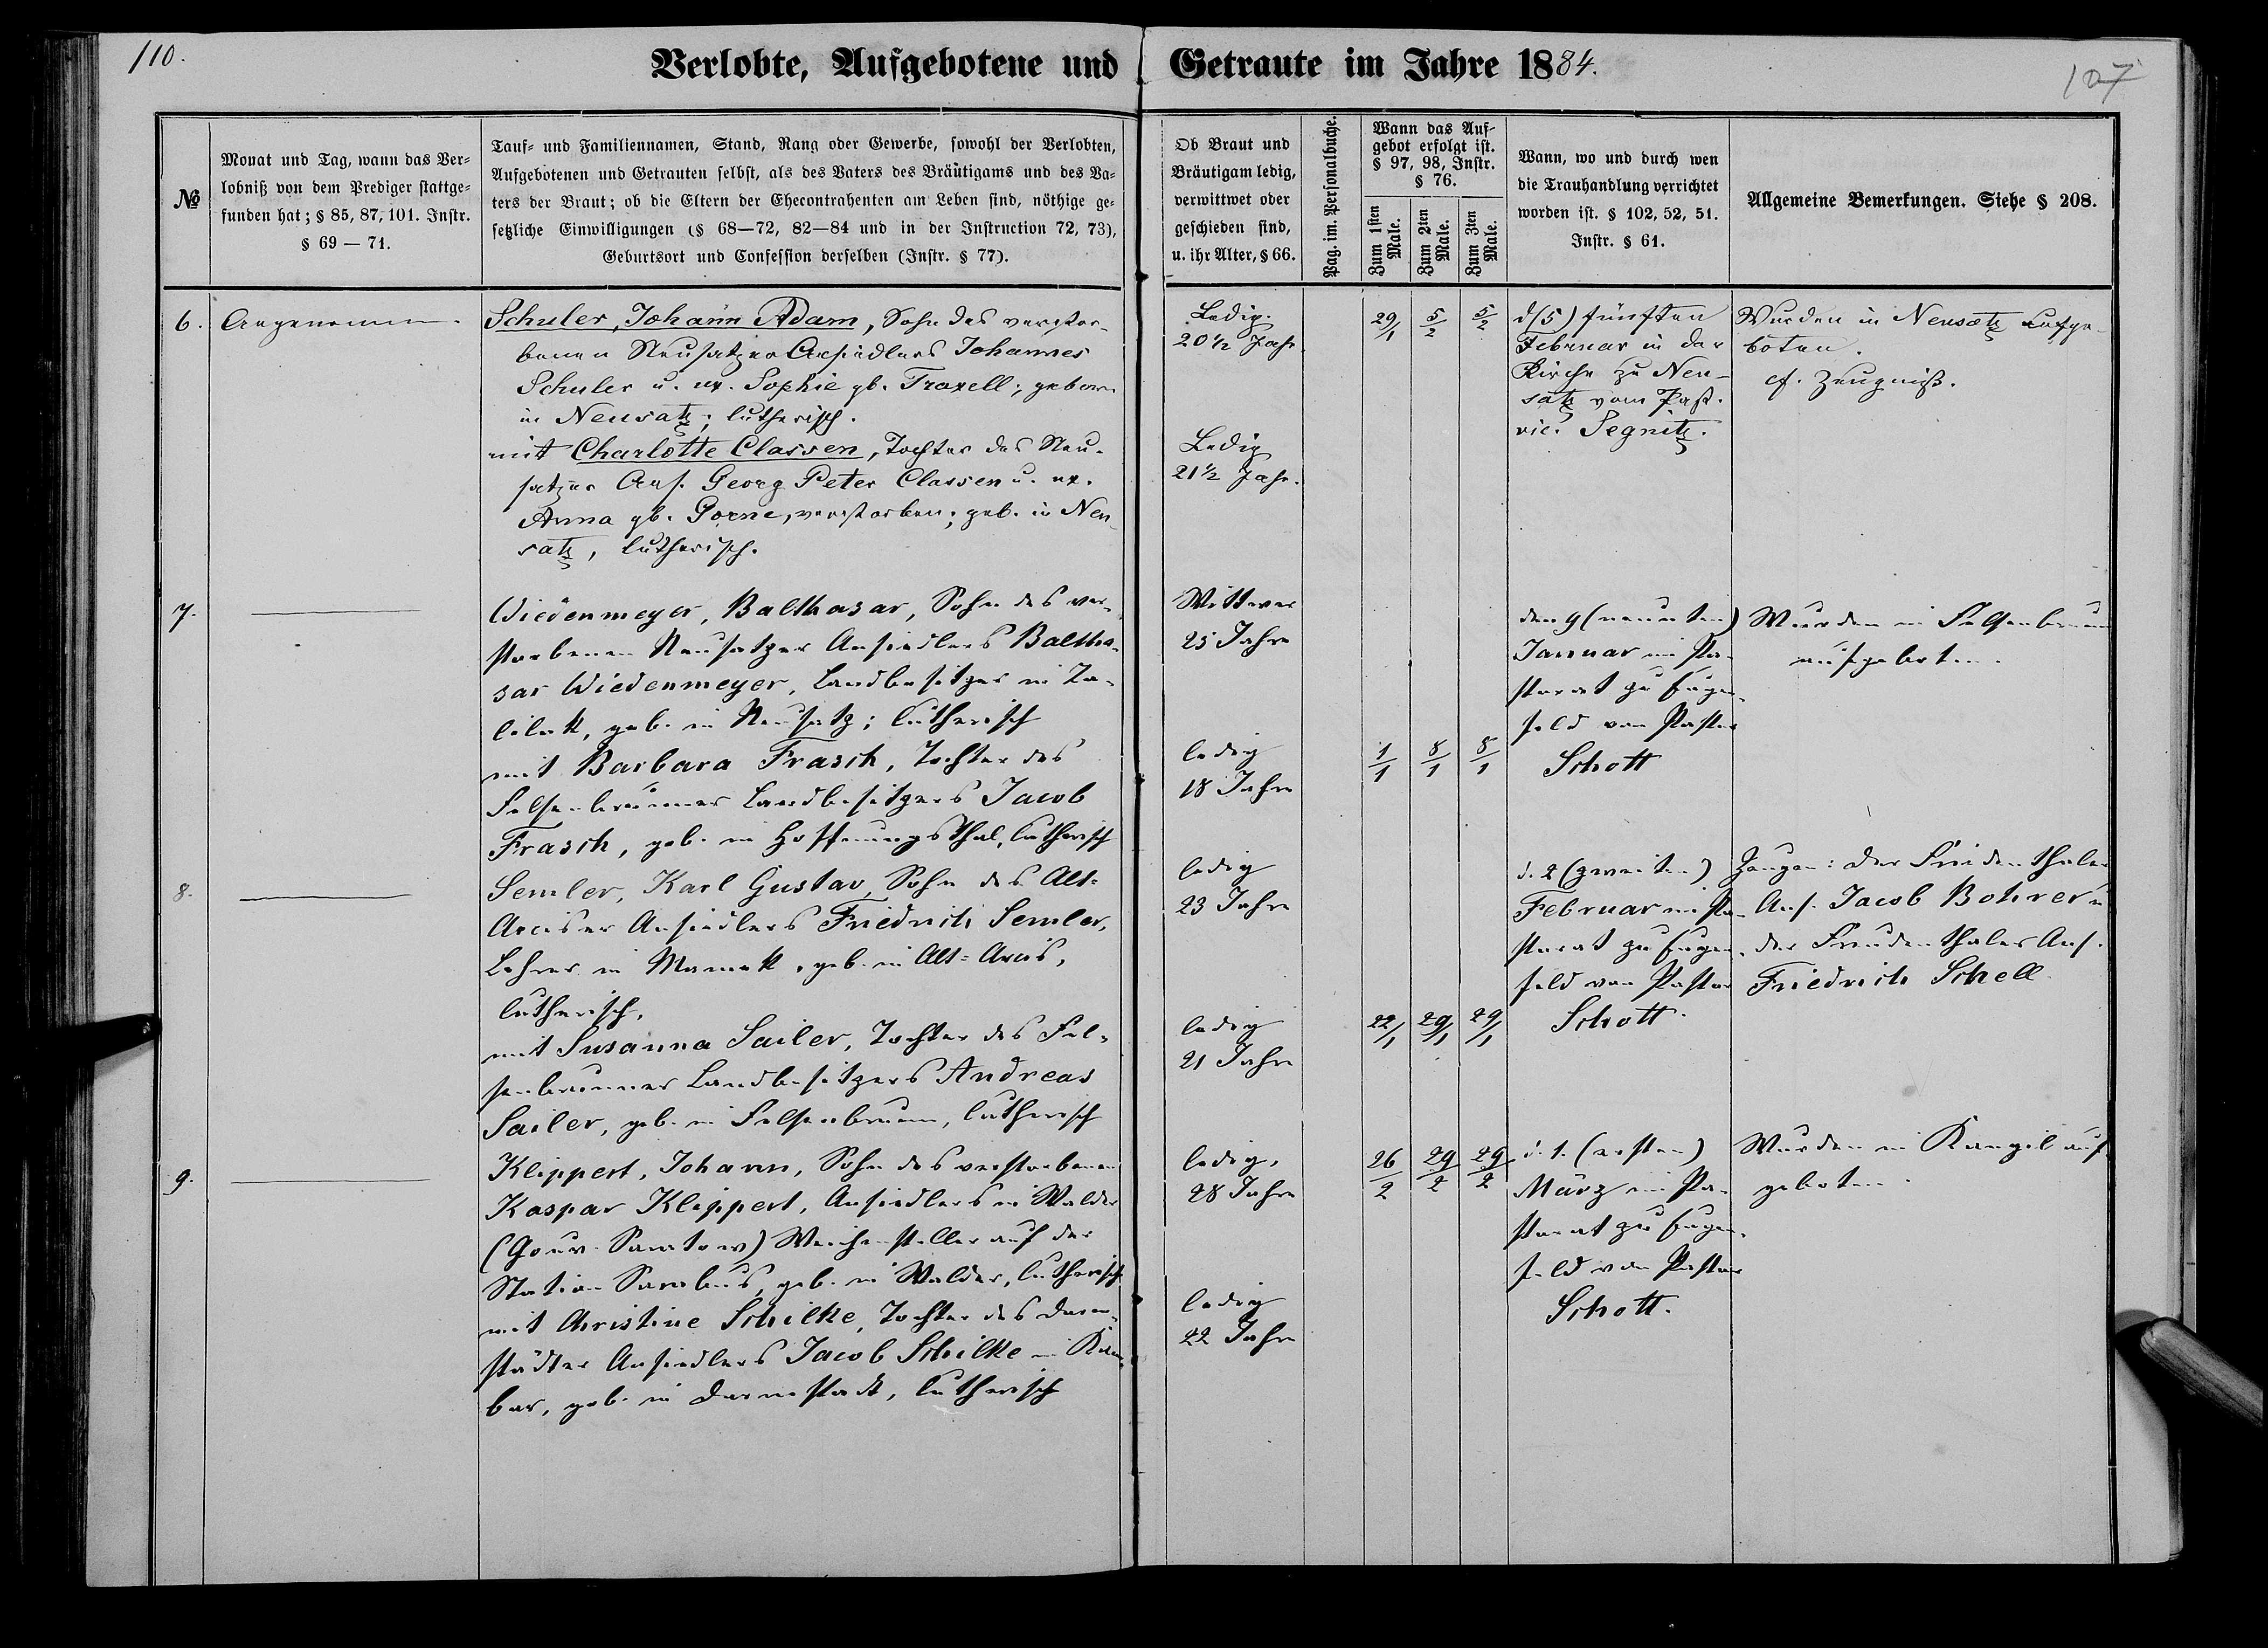 110.
Verlobte, Aufgebotene und Getraute im Jahre 1884.
107
№
Monat und Tag, wann das Ver-
lobniß von dem Prediger stattge-
funden hat; § 85, 87, 101. Instr.
§ 69 — 71.
Tauf- und Familiennamen, Stand, Rang oder Gewerbe, sowohl der Verlobten,
Aufgebotenen und Getrauten selbst, als des Vaters des Bräutigams und des Va-
ters der Braut; ob die Eltern der Ehecontrahenten am Leben sind, nöthige ge-
setzliche Einwilligungen (§ 68—72, 82—84 und in der Instruction 72, 73),
Geburtsort und Confession derselben (Instr. § 77).
Ob Braut und
Bräutigam ledig,
verwittwet oder
geschieden sind,
u. ihr Alter, § 66.
Pag. im. Personalbuche.
Wann das Auf-
gebot erfolgt ist.
§ 97, 98, Instr.
§ 76.
Zum 1sten
Male.
Zum 2ten
Male.
Zum 3ten
Male.
Wann, wo und durch wen
die Trauhandlung verrichtet
worden ist. § 102, 52, 51.
Instr. § 61.
Allgemeine Bemerkungen. Siehe § 208.
6.
Angenommen.
Schuler, Johann Adam, Sohn des verstor-
benen Neusatzer Ansiedlers Johannes
Schuler u. ux. Sophie gb. Traxell; geboren
in Neusatz; lutherisch.
mit Charlotte Classen, Tochter des Neu-
satzer Ans. Georg Peter Classen u. ux.
Anna gb. Gorne, verstorben; geb. in Neu-
satz, lutherisch.
Ledig.
20 1/2 Jahr.
Ledig
21 1/2 Jahr.
29/1
5/2
5/2
d/5) fünften
Februar in der
Kirche zu Neu-
satz vom Past.
vic. Segnitz.
Wurden in Neusatz aufge-
boten.
cf. Zeugniß.
7.
Wiedenmeyer, Balthasar, Sohn des ver-
storbenen Neusatzer Ansiedlers Baltha-
sar Wiedenmeyer, Landbesitzer in Ta-
, geb. in Neusatz; lutherisch
mit Barbara Frasch, Tochter des
Felsenbrunner Landbesitzers Jacob
Frasch, geb. in Hoffnungsthal, lutherisch
Wittwer
25 Jahre
ledig
18 Jahre
1/1
8/1
8/1
den 9 (neunten)
Januar im Pa-
storat zu Eugen-
feld von Pastor
Schott
Wurden in Felsenbrunn
aufgeboten.
8.
Semler, Karl Gustav, Sohn des Alt-
Arciser Ansiedlers Friedrich Semler,
Lehrer in Mamak, geb. in Alt-Arcis,
lutherisch,
mit Susanna Sailer, Tochter des Fel-
senbrunner Landbesitzers Andreas
Sailer, geb. in Felsenbrunn, lutherisch
ledig
23 Jahre
ledig
21 Jahre
22/1
29/1
29/1
d. 2 (zweiten)
Februar im Pa-
storat zu Eugen-
feld von Pastor
Schott.
Zeugen: Der Friedenthaler
Ans. Jacob Bohrer u
der Freudenthaler Ans.
Friedrich Schell
9.
Klippert, Johann, Sohn des verstorbenen
Kaspar Klippert, Ansiedlers in Walder
(Gouv. Saratow) Weichensteller auf der
Station Sarabus, geb. in Walder, lutherisch
mit Christine Schilke, Tochter des Darm-
städter Ansiedlers Jacob Schilke in
bar, geb. in Darmstadt, lutherisch
ledig,
28 Jahre
ledig
22 Jahre
26/2
29/2
29/2
d. 1. (ersten)
März im Pa-
storat zu Eugen-
feld von Pastor
Schott.
Wurden in Kangil auf
geboten.